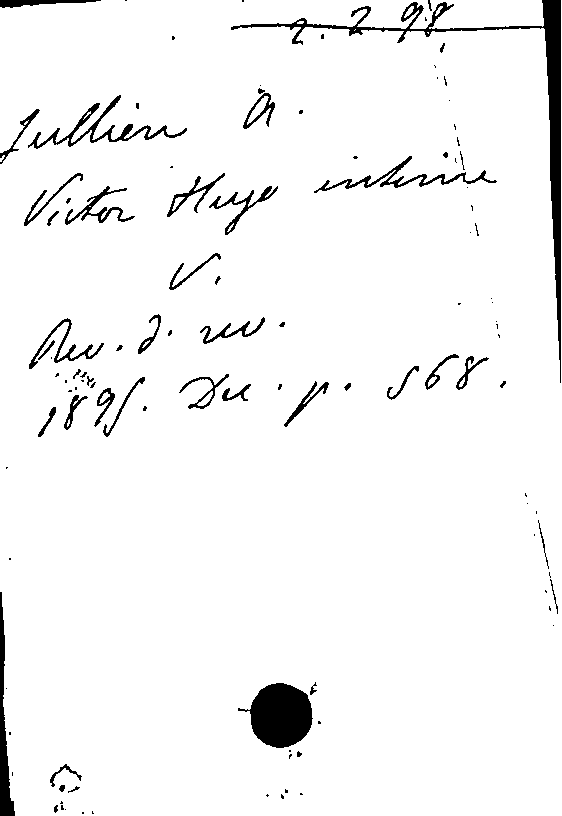 2. 2. 98.
Jullien A.
Victor Hugo intime
V.
Rev. d. rev.
1895. Dec. p. 568.